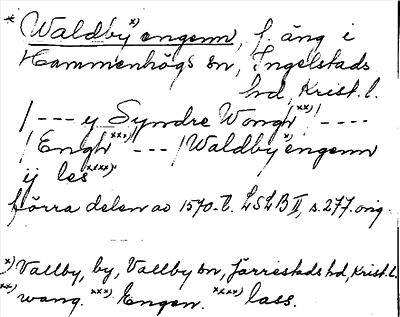 * Waldby*) engenn, f. äng i
Hammenhögs sn, Ingelstads
hd, Krist. l.
/ - - - y Syndre Wongh **) / - - - -
/ Engh ***) - - - / Waldby*) engenn
ij les ****)
förra delen av 1570-t. LSLB II, s. 277. orig.
*) Vallby, by, Vallby sn, Järrestads hd, Krist. l.
**) wang. ***) Engen. ****) lass.